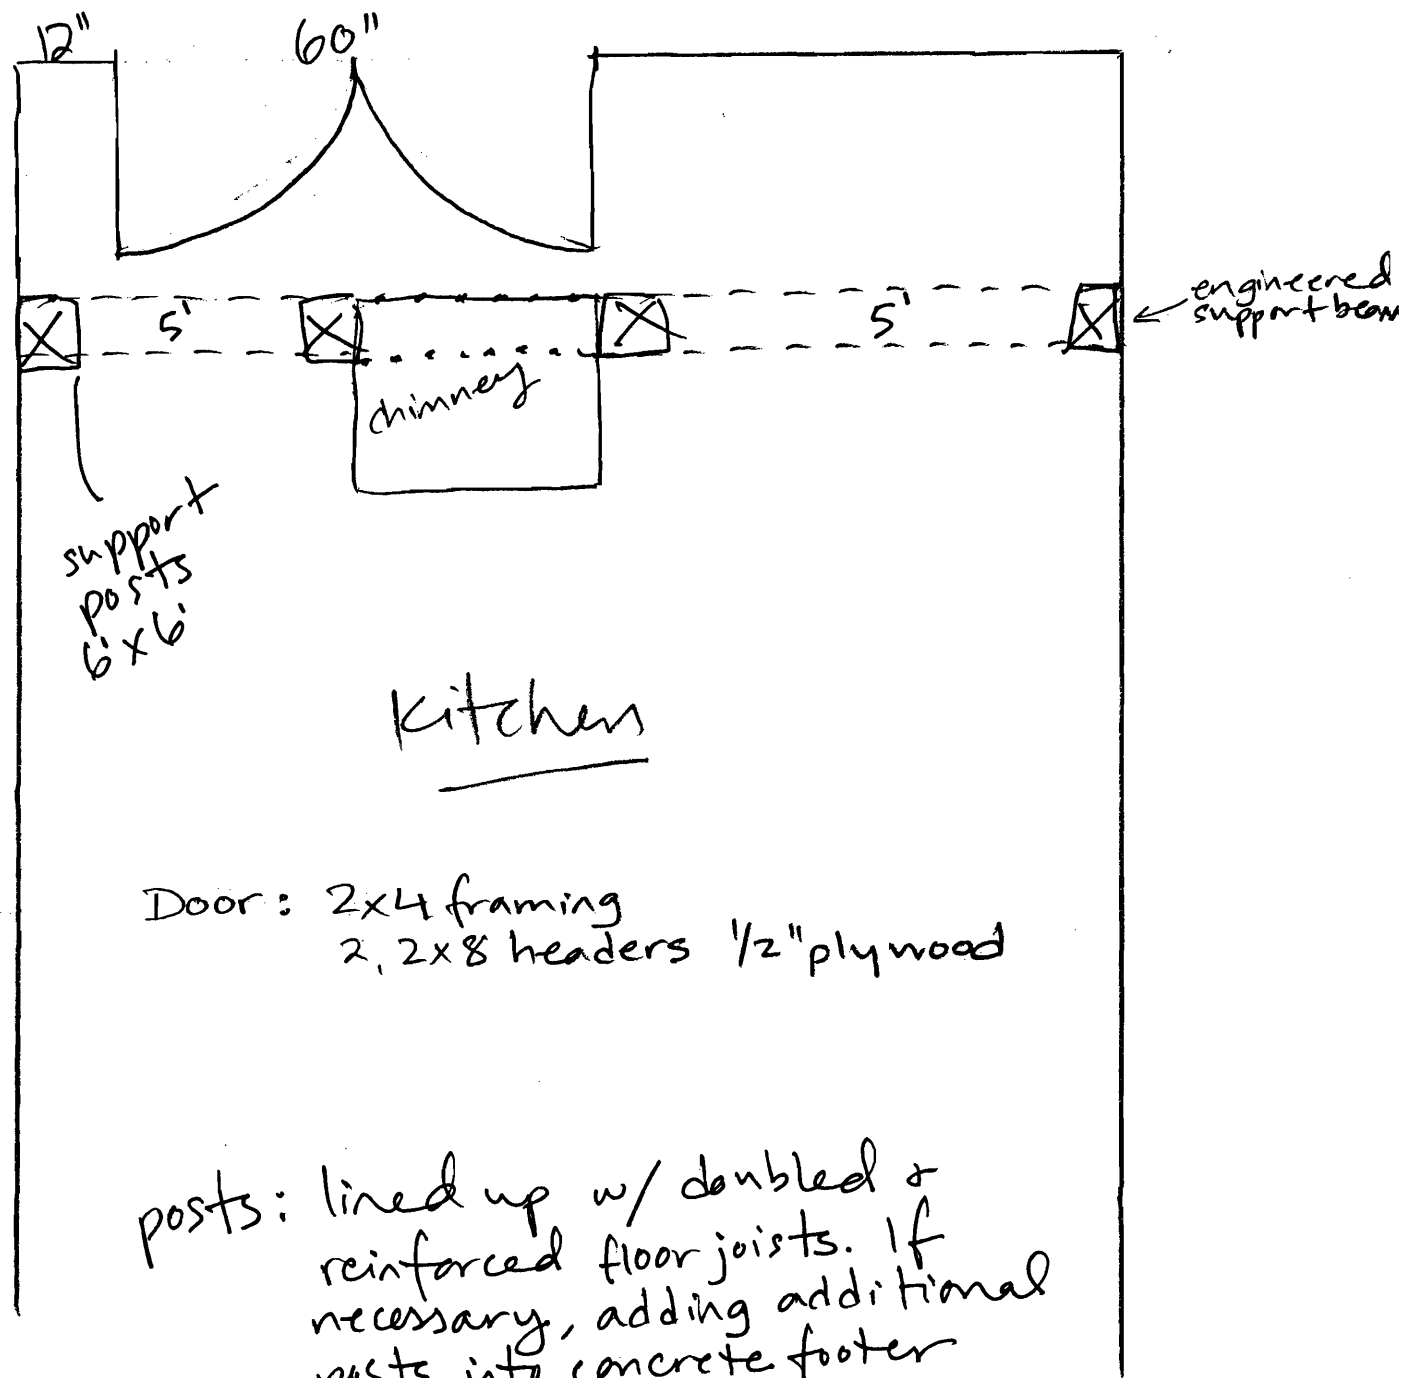 12" 60"
5' 5' engineered
support beam
chimney
support
posts
6'x6'
Kitchen
Door: 2x4 framing
2, 2x8 headers 1/2" plywood
posts: lined up w/ doubled &
reinforced floor joists. If
necessary, adding additional
posts into concrete footer